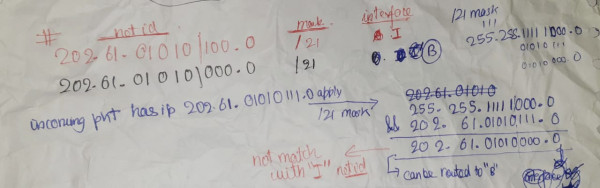 # net id mask interface
202.61.01010|100.0 /21 I
202.61.01010|000.0 /21 B
/21 mask
255.255.11111000.0
01010111
01010000.0
uncoming pkt has ip 202.61.01010111.0 apply /21 mask
202.61.01010
255.255.11111000.0
&& 202.61.01010111.0
202.61.01010000.0
not match with "I" net id
can be routed to "B"